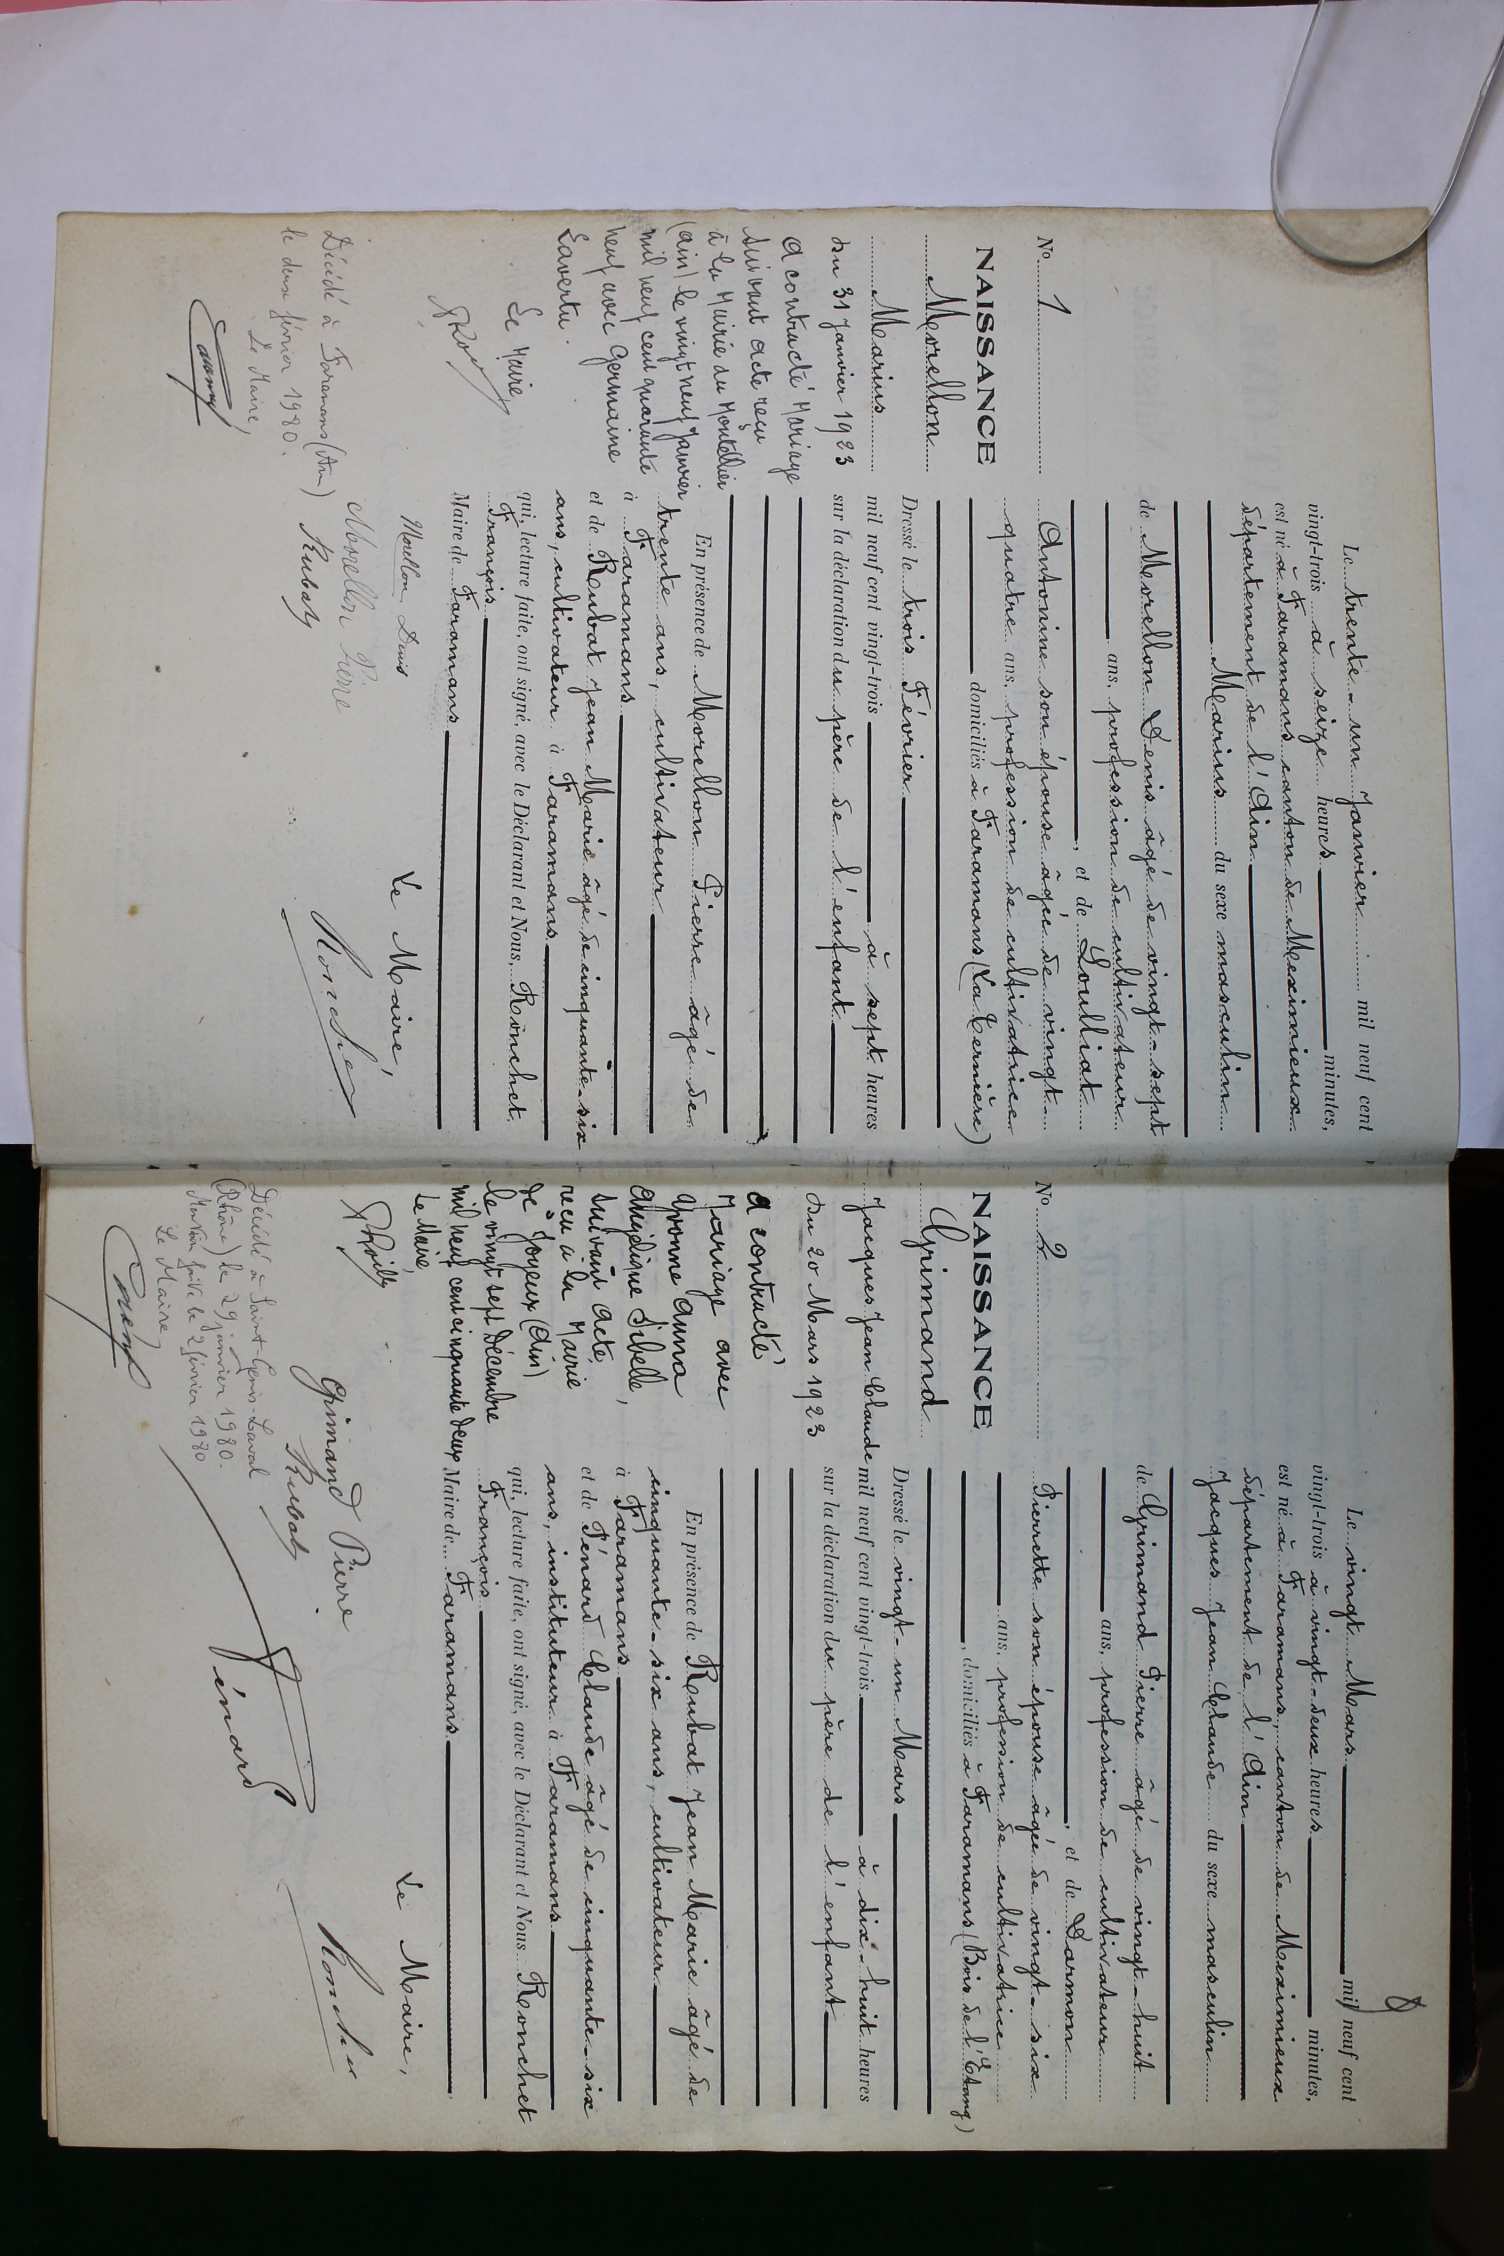 No 1
NAISSANCE
Morellon
Marius
du 31 Janvier 1923
a contracté Mariage
suivant acte reçu
à la Mairie du Montellier
(ain) le vingt neuf Janvier
mil neuf cent quarante
neuf avec Germaine
Lavertu.
Le Maire
Décédé à Faramans (Ain)
le deux février 1980.
Le Maire,
Le trente-un Janvier mil neuf cent
vingt-trois à seize heures minutes,
est né à Faramans canton de Meximieux
département de l'Ain
Marius du sexe masculin
de Morellon Denis âgé de vingt-sept
ans, profession de cultivateur
, et de Loulliat
Antonine son épouse âgée de vingt-
quatre ans, profession de cultivatrice
domiciliés à Faramans (La Ternière)
Dressé le trois Février
mil neuf cent vingt-trois à sept heures
sur la déclaration du père de l'enfant
En présence de Morellon Pierre âgé de
trente ans, cultivateur
à Faramans
et de Roubat Jean Marie âgé de cinquante-six
ans, cultivateur à Faramans
qui, lecture faite, ont signé, avec le Déclarant et Nous, Ronchet
François
Maire de Faramans
Le Maire,
Morellon Denis
Morellon Pierre
Rubat
Ronchet
8
No 2
NAISSANCE
Grimand
Jacques Jean Claude
du 20 Mars 1923
a contracté
Mariage avec
Yvonne Anna
Angélique Sibelle,
suivant acte
reçu à la Mairie
de Joyeux (Ain)
le vingt sept Décembre
mil neuf cent cinquante deux
Le Maire
Décédé à Saint-Genis-Laval
(Rhône) le 29 janvier 1980.
Mention faite le 2 février 1980
Le Maire,
Le vingt Mars mil neuf cent
vingt-trois à vingt-deux heures minutes,
est né à Faramans, canton de Meximieux
département de l'Ain
Jacques Jean Claude du sexe masculin
de Grimand Pierre âgé de vingt-huit
ans, profession de cultivateur
, et de Darmon
Pierrette son épouse âgée de vingt-six
ans, profession de cultivatrice
, domiciliés à Faramans (Bois de l'Etang)
Dressé le vingt-un Mars
mil neuf cent vingt-trois à dix-huit heures
sur la déclaration du père de l'enfant
En présence de Roubat Jean Marie âgé de
cinquante-six ans, cultivateur
à Faramans
et de Fénard Claude âgé de cinquante-six
ans, instituteur à Faramans
qui, lecture faite, ont signé, avec le Déclarant et Nous Ronchet
François
Maire de Faramans
Le Maire,
Grimand Pierre
Rubat
Fénard
Ronchet